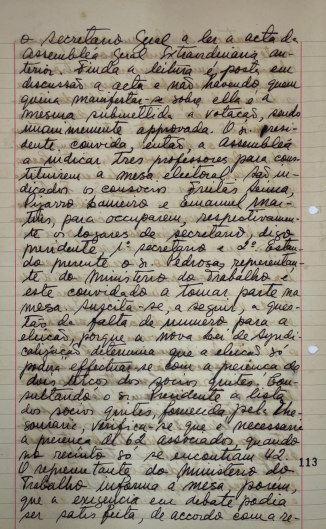 o Secretario Geral a ler a acta da
Assembléa Geral Extraordinaria an-
terior. Finda a leitura é posta em
discussão a acta e não havendo quem
queira manifestar-se sobre ella é a
mesma submettida a votação, sendo
unanimemente approvada. O sr. presi-
dente convida, então, a Assembléa
a indicar tres professores para cons-
tituirem a mesa eleitoral. São in-
dicados os consocios Freitas
Pizarro Loureiro e Emanuel Mar-
tins, para occuparem, respectivamen-
te os logares de secretario, digo
presidente, 1º secretario e 2º. Estan-
do presente o sr. Pedrosa representan-
te do Ministerio do Trabalho é
este convidado a tomar parte na
mesa. Suscita-se, a seguir, a ques-
tão de falta de numero para a
eleição, porque a nova lei de Syndi-
calização determina que a eleição só
poderá effectuar-se com a presença de
dois terços dos socios quites. Con-
sultando o sr. Presidente a lista
dos socios quites, fornecida pelo The-
soureiro, verifica-se que é necessaria
a presença de 62 associados, quando
no recinto só se encontram 42.
113
O representante do Ministerio do
Trabalho informa á mesa, porem,
que a exigencia em debate podia
ser satisfeita, de accordo com a re-